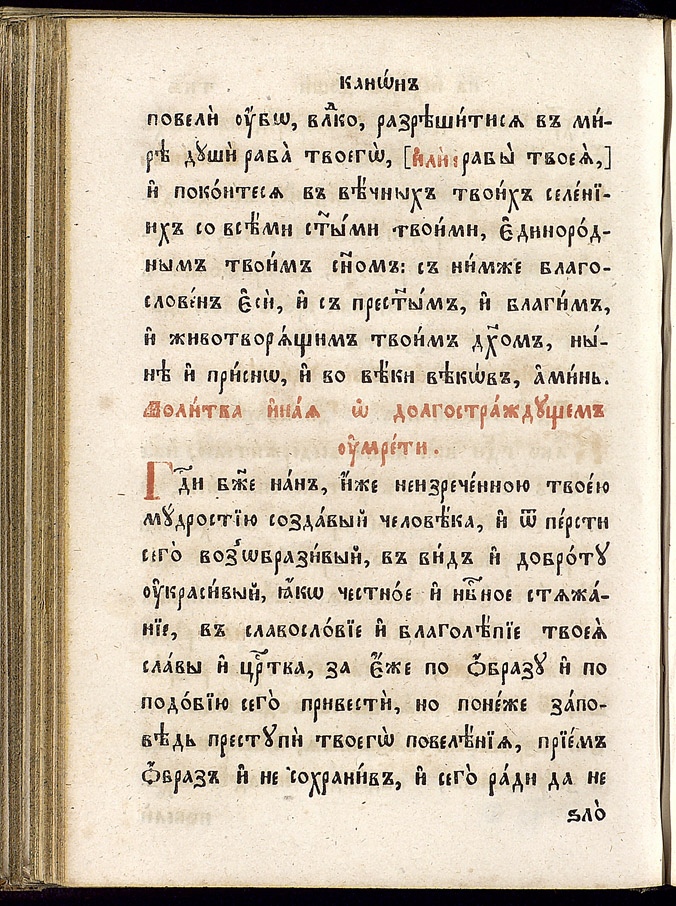 канѡ́нъ
повелѝ ᲂу҆́бѡ, влⷣко, разрѣши́тисѧ въ ми́-
рѣ дꙋшѝ раба̀ твоегѡ̀, [и҆лѝ: рабы̀ твоеѧ̀,]
и҆ поко́итесѧ въ вѣ́чныхъ твои́хъ селе́нї-
ихъ со всѣ́ми ст҃ы́ми твои́ми, є҆диноро́д-
нымъ твои́мъ сн҃омъ: съ ни́мже благо-
слове́нъ є҆сѝ, и҆ съ прест҃ы́мъ, и҆ благи́мъ,
и҆ животворѧ́щимъ твои́мъ дх҃омъ, ны́-
нѣ и҆ при́снѡ, и҆ во вѣ́ки вѣкѡ́въ, а҆ми́нь.
Моли́тва и҆на́ѧ ѡ҆ долгостра́ждꙋщемъ
ᲂу҆мре́ти.
Гдⷭ҇и бж҃е на́нъ, и҆́же неизрече́нною твое́ю
мꙋ́дростїю созда́вый человѣ́ка, и҆ ѿ пе́рсти
сего̀ воз̾ѡбрази́вый, въ ви́дъ и҆ добро́тꙋ
ᲂу҆краси́вый, ꙗ҆́кѡ честно́е и҆ нбⷭ҇ное стѧжа́-
нїе, въ славосло́вїе и҆ благолѣ́пїе твоеѧ̀
сла́вы и҆ црⷭ҇тка, за є҆́же по ѻ҆́бразꙋ и҆ по
подо́бїю сего̀ привестѝ, но поне́же за́по-
вѣдь престꙋпѝ твоегѡ̀ повелѣ́нїѧ, прїе́мъ
ѻ҆́бразъ и҆ не сохрани́въ, и҆ сего̀ ра́ди да не
ѕло̀